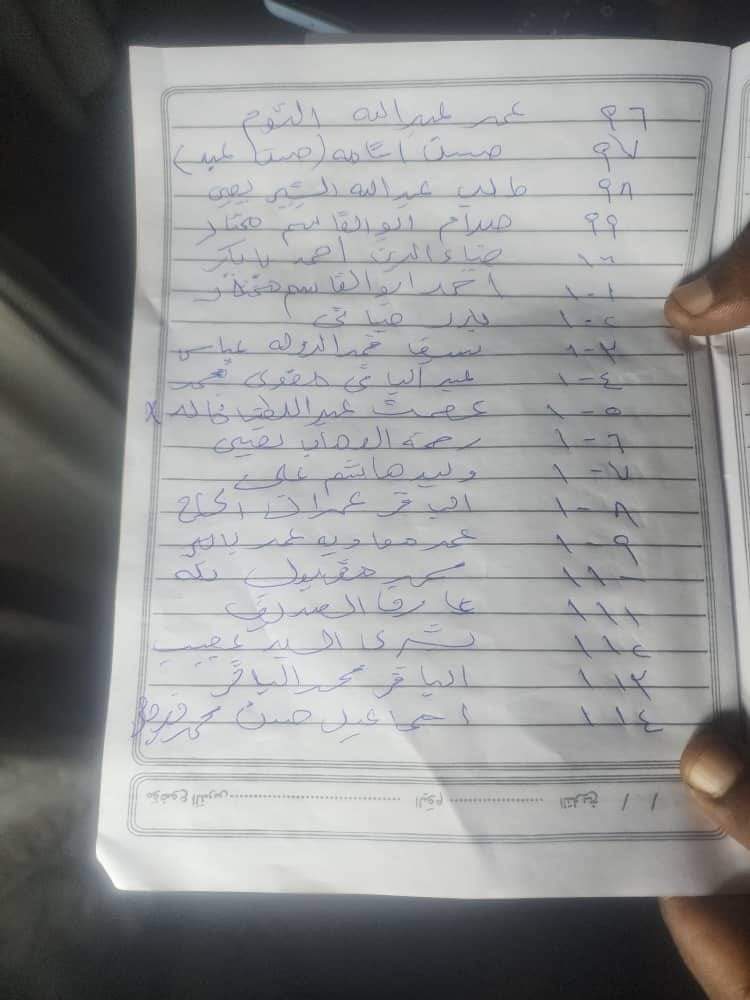 ٩٦ عمر عبدالله التوم
٩٧ حسن اسامه (حسن عبد)
٩٨ طالب عبدالله البشير يحيى
٩٩ صدام ابوالقاسم مختار
١٠٠ ضياءالدين احمد بابكر
١٠١ احمد ابوالقاسم مختار
١٠٢ بدر
١٠٣ قمرالدوله عباس
١٠٤ عبدالباقي محمد
١٠٥ عصمت عبداللطيف خالد x
١٠٦ رحمة الوهاب يحيى
١٠٧ وليد هاشم علي
١٠٨ الباقر عمران الحاج
١٠٩ عمر معاويه عمر بابكر
١١٠ مقبول
١١١ عارف الصديق
١١٢ بشرى السيد
١١٣ الباقر محمد الباقر
١١٤ اسماعيل حسن محمد
/ / التاريخ اليوم موضوع الدرس